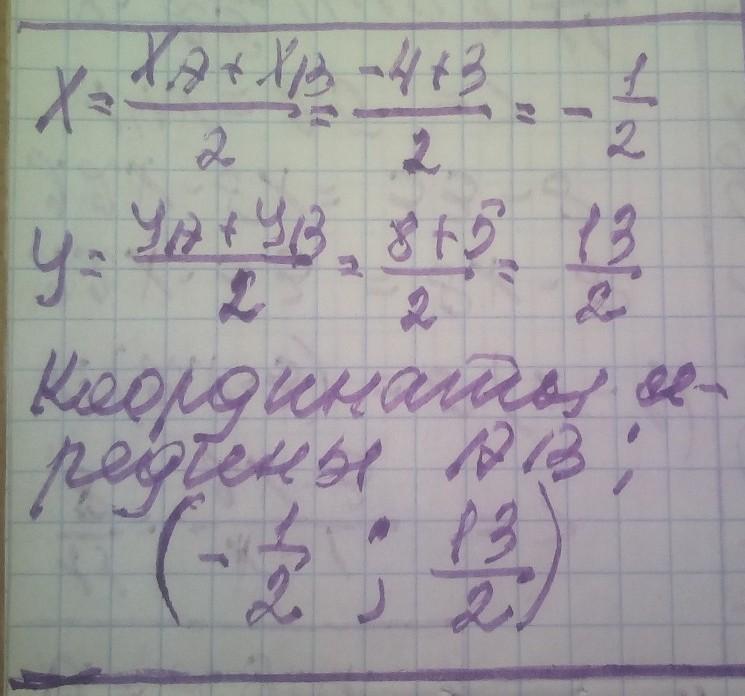 x = (xA + xB)/2 = (-4+3)/2 = - 1/2
y = (yA + yB)/2 = (8+5)/2 = 13/2
Координаты се-
редины AB;
(- 1/2 ; 13/2)